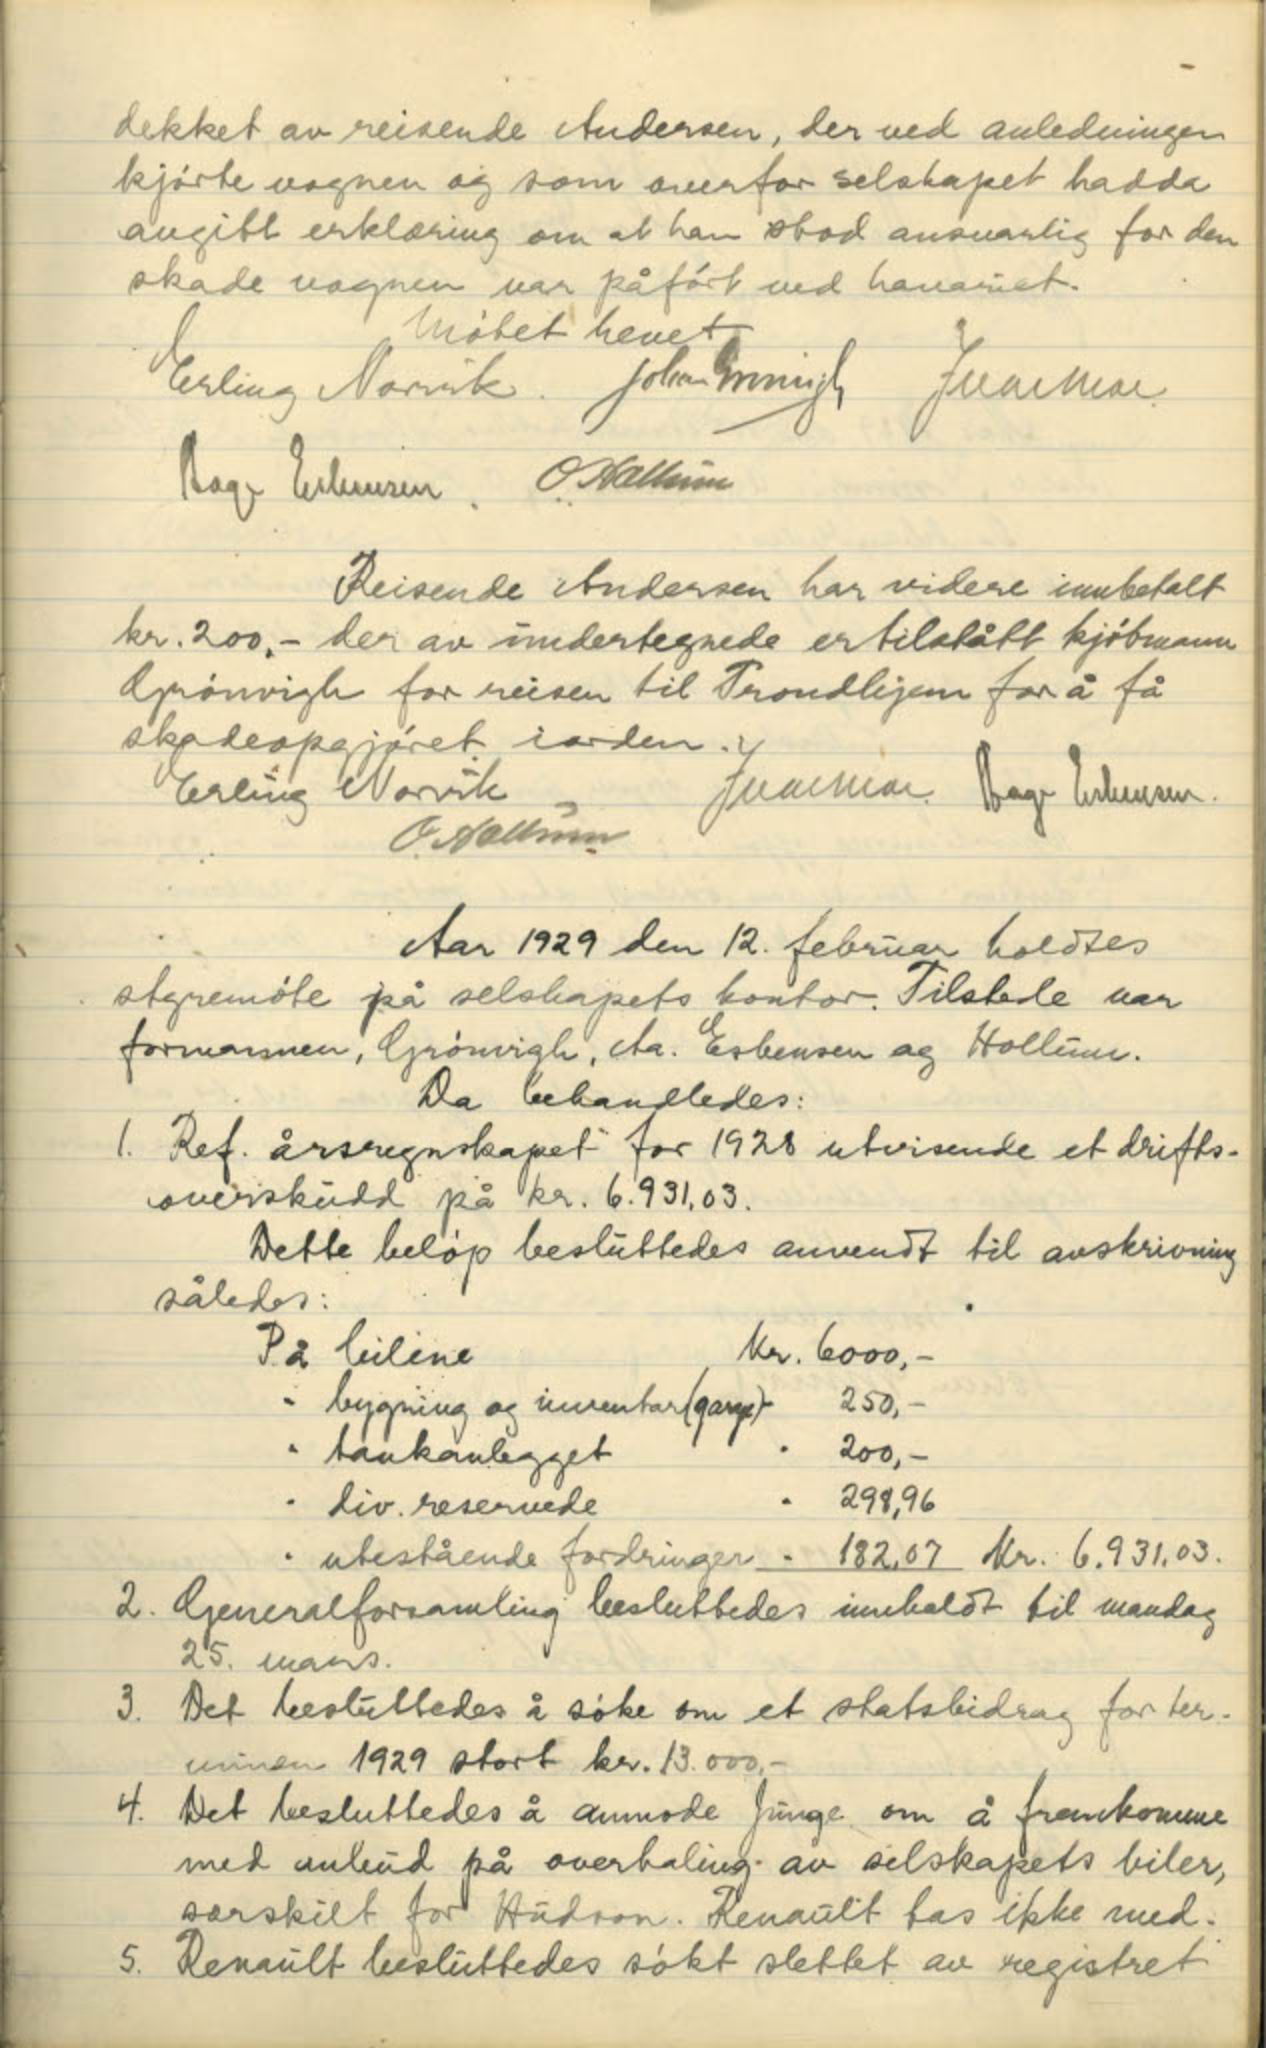 dekket av reisende Andersen, der ved anledningen
kjórte vognen og som overfor selskapet hadda
avgitt erklæring om at han stod ansvarlig for den
skade vognen var påfórt ved havariet.
Mótet hevet
Erling Norvik. Johan Grønvigh
Aage Esbensen. O. Hollum
Reisende Andersen har videre innbetalt
kr. 200,- der av undertegnede er tilstått kjóbmann
Grónvigh for reisen til Trondhjem for å få
skadeopgjóret iorden.
Erling Norvik Aage Esbensen.
O. Hollum
Aar 1929 den 12. februar holdtes
styremóte på selskapets kontor. Tilstede var
formannen, Grónvigh, Aa. Esbensen og Hollum.
Da behandledes:
1. Ref. årsregnskapet for 1928 utvisende et drifts-
overskudd på kr. 6.931,03.
Dette belóp besluttedes anvendt til avskrivning
således:
På bilene Kr. 6000,-
" bygning og inventar (garage) " 250,-
" tankanlegget " 200,-
" div. reservede " 298,96
" utestående fordringer " 182,07 Kr. 6.931,03.
2. Generalforsamling besluttedes innkaldt til mandag
25. mars.
3. Det besluttedes å sóke om et statsbidrag for ter-
minen 1929 stort kr. 13.000,-
4. Det besluttedes å anmode Junge om å fremkomme
med anbud på overhaling av selskapets biler,
særskilt for Hudson. Renault tas ikke med.
5. Renault besluttedes sókt slettet av registret